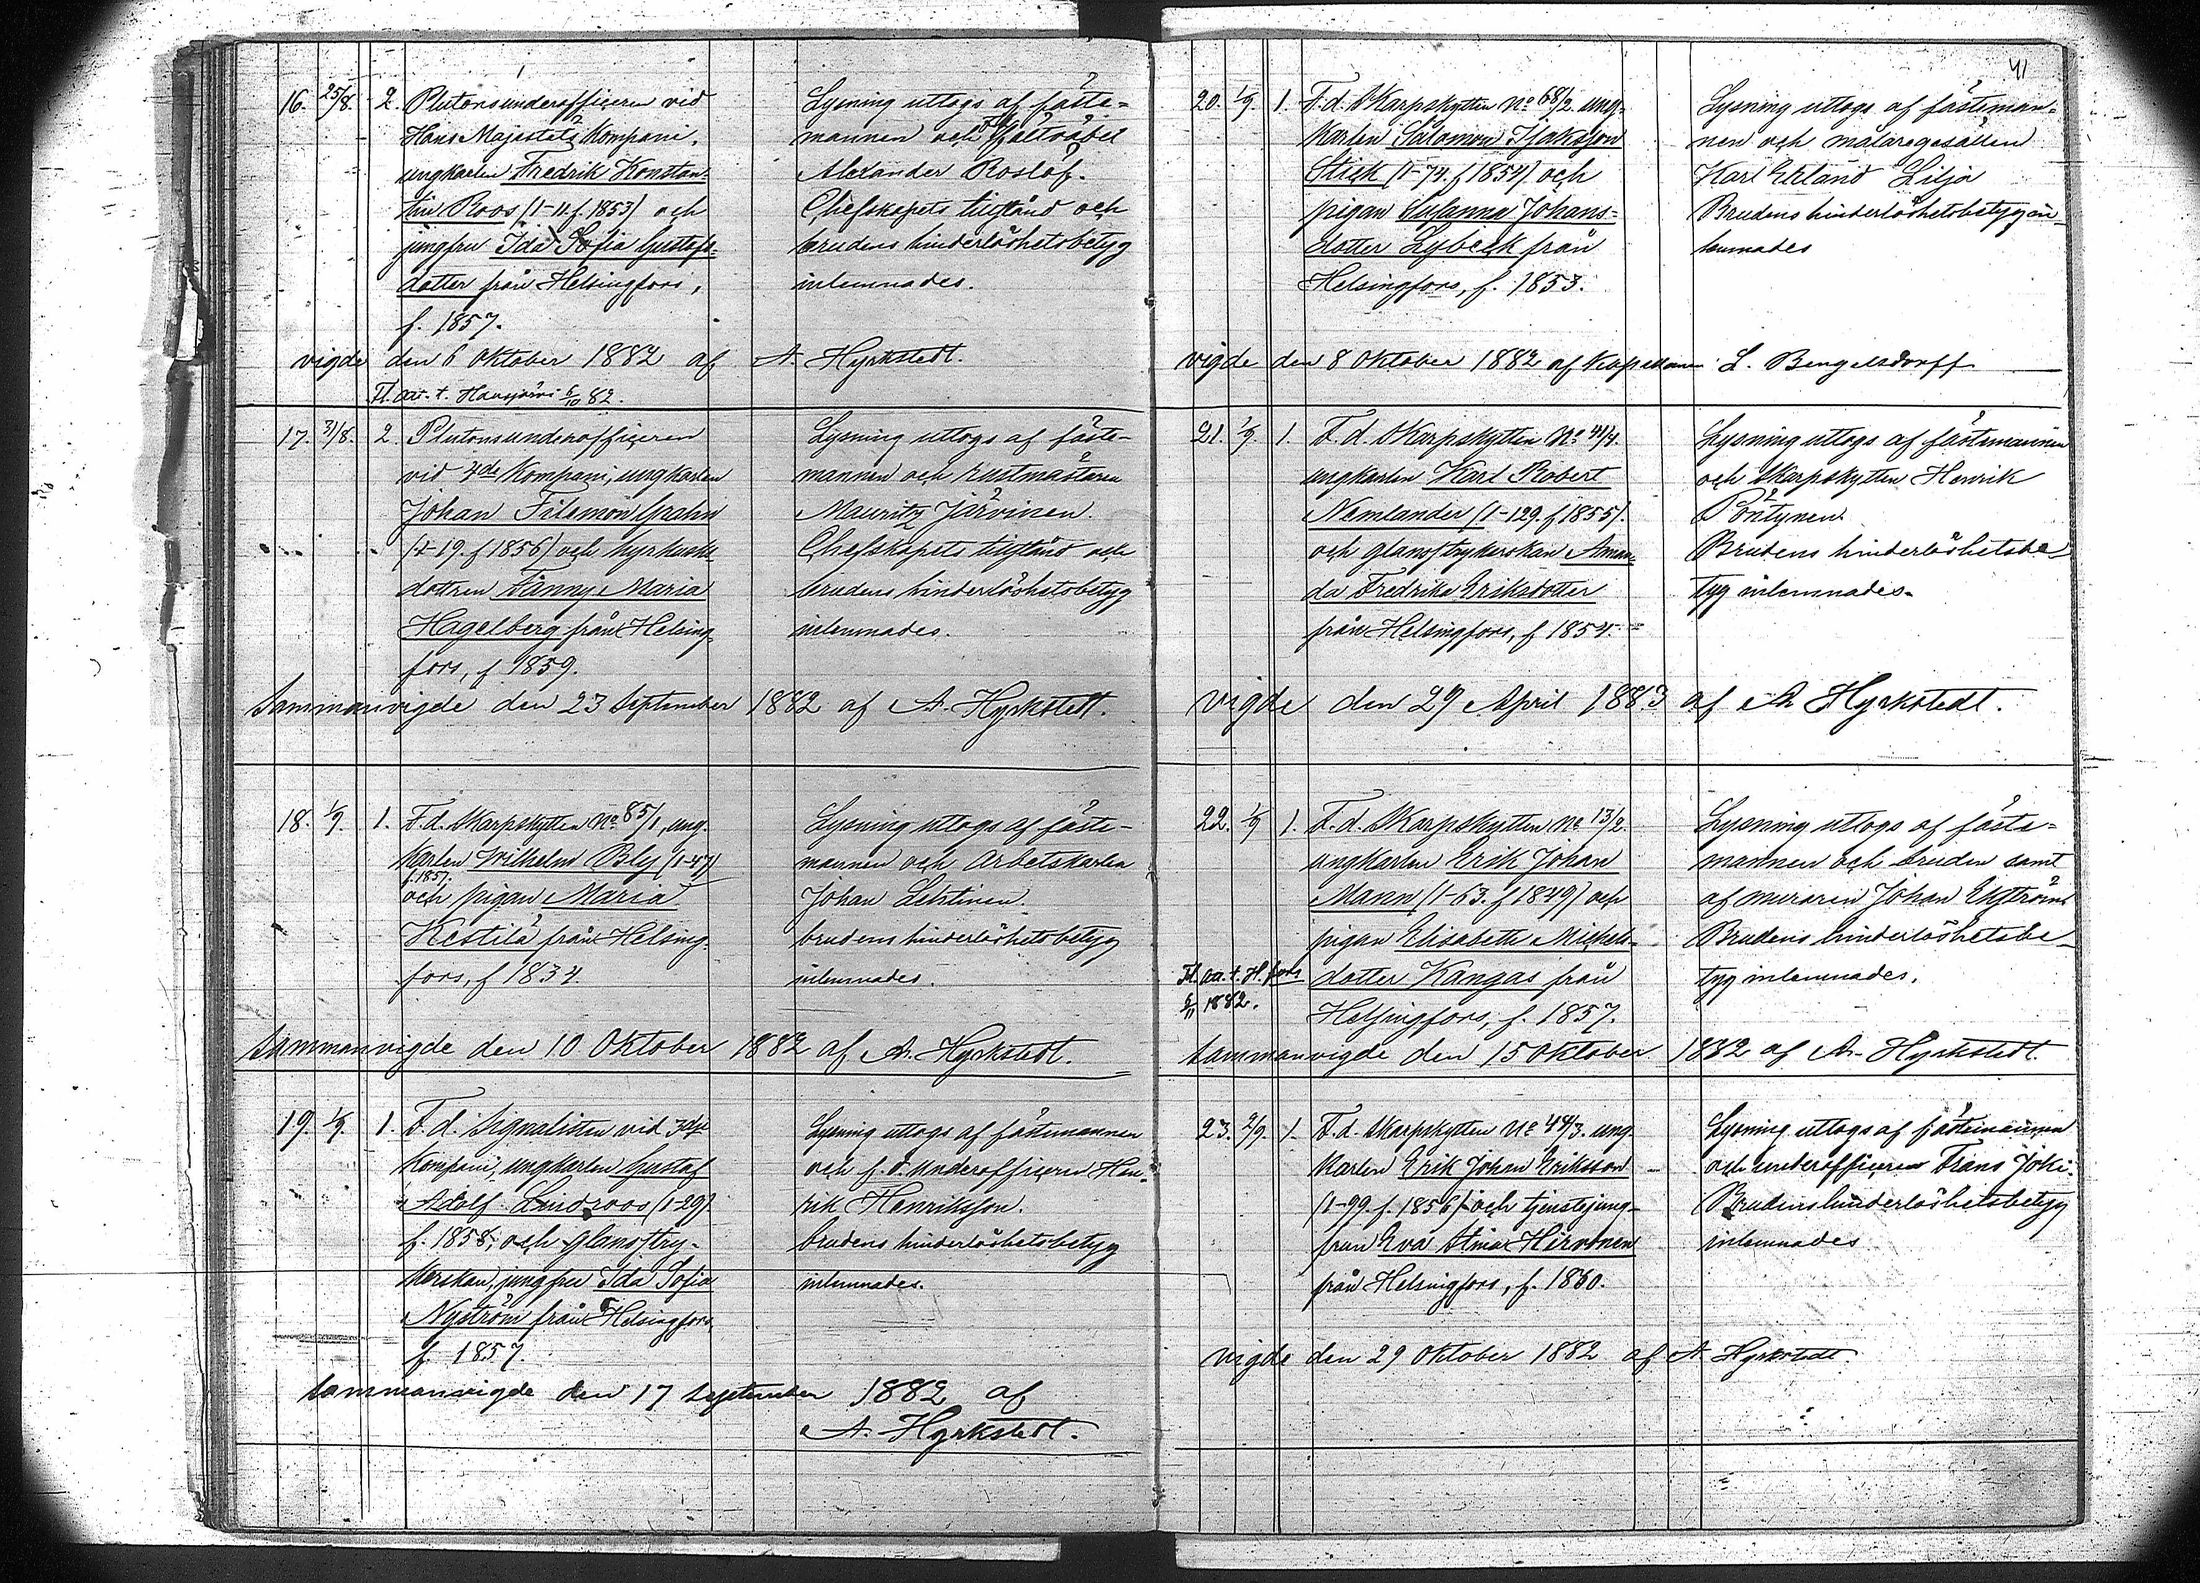 41
16. 25/8. 2. Plutonsunderofficeren vid
Hans Majestäts Kompani,
ungkarlen Fredrik Konstan-
tin Roos (1-11. f. 1853) och
jungfru Ida Sofia Gustafs-
dotter från Helsingfors,
f. 1857.
Lysning uttogs af fäste-
mannen och
Alexander Roslöf.
Chefskapets tillstånd och
brudens hinderlöshetsbetyg
inlemnades.
vigde den 6 Oktober 1882 af A. Hyrkstedt.
Fl. att. t. Hausjärvi 6/10 82.
17. 31/8. 2. Plutonsunderofficeren
vid 4de Kompani, ungkarlen
Johan Filemon Grahn
(1-19. f 1856) och hyrkusks
dottren Fanny Maria
Hagelberg från Helsing-
fors, f 1859.
Lysning uttogs af fäste-
mannen och rustmästaren
Mauritz Järvinen.
Chefskapets tillstånd och
brudens hinderlöshetsbetyg
inlemnades.
Sammanvigde den 23 September 1882 af A. Hyrkstedt.
18. 1/9. 1. F. d. Skarpskytten No 85/1, ung-
karlen Wilhelm Bly (1-47)
f. 1857.
och pigan Maria
Kestilä från Helsing-
fors, f 1834.
Lysning uttogs af fäste-
mannen och Arbetskarlen
Johan Lehtinen.
brudens hinderlöshetsbetyg
inlemnades.
Sammanvigde den 10 Oktober 1882 af A. Hyrkstedt.
19. 1/9. 1. F. d. Signalisten vid 3dje
Kompani, ungkarlen Gustaf
Adolf Lindroos (1-29)
f. 1858, och glansstry-
kerskan, jungfru Ida Sofia
Nyström från Helsingfors,
f. 1857.
Lysning uttogs af fästemannen
och f. d. underofficeren Hen-
rik Henriksson.
brudens hinderlöshetsbetyg
inlemnades.
Sammanvigde den 17 September 1882 af
A. Hyrkstedt.
20. 1/9. 1. F. d. Skarpskytten No 68/2. ung-
karlen Salomon Isaksson
Stick (1-74. f 1854) och
pigan Susanna Johans-
dotter Lybeck från
Helsingfors, f. 1853.
Lysning uttogs af fästeman-
nen och målaregesällen
Karl Erland Lilja
Brudens hinderlöshetsbetyg in-
lemnades
vigde den 8 Oktober 1882 af Kapellanen L. Bengelsdorff
21. 1/9. 1. F. d. Skarpskytten No 41/4.
ungkarlen Karl Robert
Nemlander (1-129. f 1855).
och glansstrykerskan Aman-
da Fredrika Eriksdotter
från Helsingfors, f 1854.
Lysning uttogs af fästemannen
och Skarpskytten Henrik
Pöntynen.
Brudens hinderlöshetsbe-
tyg inlemnades.
vigde den 29 April 1883 af A Hyrkstedt.
22. 1/9 1. F. d. Skarpskytten No 13/2.
ungkarlen Erik Johan
Mann (1-63. f 1849) och
pigan Elisabeth Mickels-
dotter Kangas från
Helsingfors, f. 1857.
Fl. att. t. H.fors
6/11 1882.
Lysning uttogs af fäste-
mannen och bruden samt
af muraren Johan Ekström
Brudens hinderlöshetsbe-
tyg inlemnades.
Sammanvigde den 15 Oktober 1882 af A. Hyrkstedt.
23. 2/9. 1. F. d. Skarpskytten No 44/3. ung-
karlen Erik Johan Eriksson
(1-99. f. 1856) och tjenstejung-
frun Eva Stina Hirvonen
från Helsingfors, f. 1860.
Lysning uttogs af fästemannen
och underofficeren Frans Joki.
Brudens hinderlöshetsbetyg
inlemnades
vigde den 29 Oktober 1882 af A Hyrkstedt.